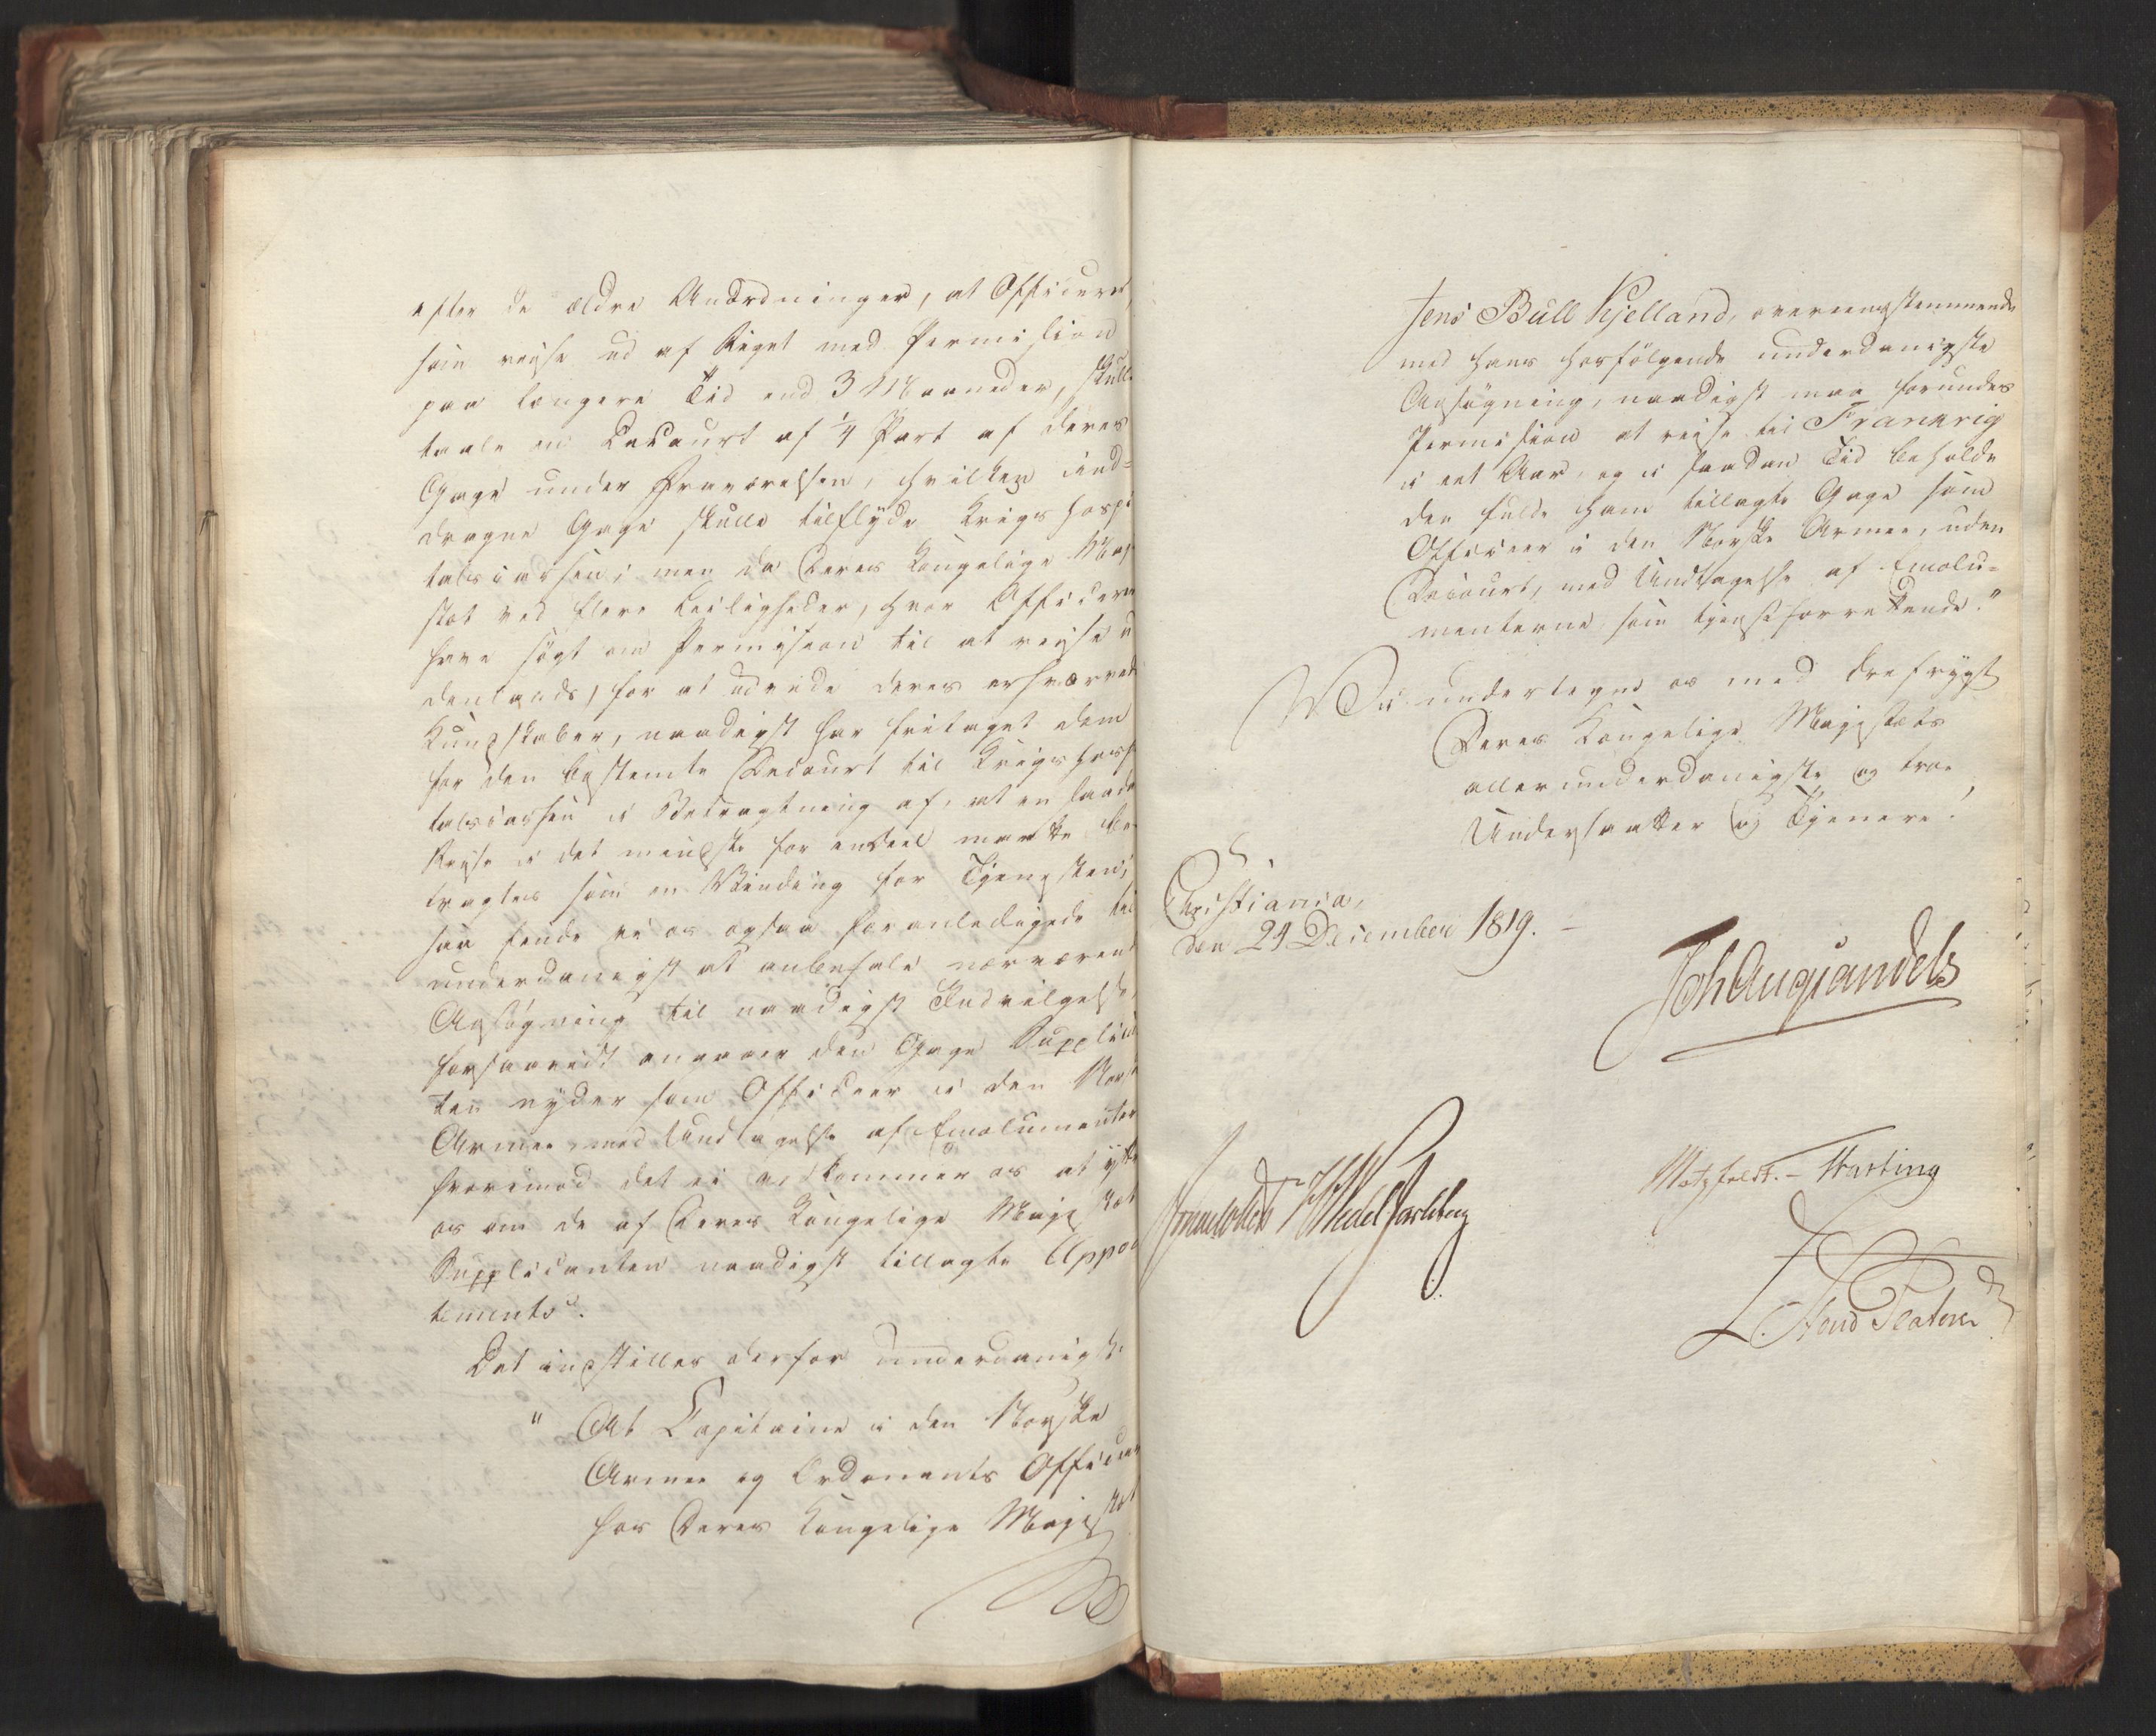 efter de ældre Anordninger, at Officerer,
som reise ud af Riget med Permission
paa længere Tid end 3 Maaneder, skulle
taale en Decourt af 1/4 Part af deres
Gage under Fraværelsen, hvilken ind-
dragne Gage skulle tilflyde Krigshospi
talscassen; men da Deres Kongelige Maje
stæt ved flere Leiligheder, hvor Officerer
have søgt om Permission til at reise u
denlands, for at udvide deres erhvervede
Kundskaber, naadigst har fritaget dem
for den bestemte Decourt til Krigshospi
talscassen i Betragtning af, at en saadan
Reise i det mindste for endeel maatte be
tragtes som en Vinding for Tjenesten;
saa finde vi os ogsaa foranledigede til
underdanigst at anbefale nærværende
Ansøgning til naadigst Indvilgelse,
forsaavidt angaaer den Gage Supplican
ten nyder som Officeer i den Norske
Armee, med Undtagelse af Emolumenter
hvorimod det ei vedkommer os at yttre
os om de af Deres Kongelige Majestæt
Supplicanten naadigst tillagte Appoin
tements.
Det indstilles derfor underdanigst:
" At Capitaine i den Norske
Armee og Ordonants Officeer
hos Deres Kongelige Majestæt
Jens Bull Kjelland, overeensstemmende
med hans hosfølgende underdanigste
Ansøgning, naadigst maa forundes
Permission at reise til Frankrig
i eet Aar, og i saadan Tid beholde
den fulde ham tillagte Gage som
Officeer i den Norske Armee, uden
Decourt, med Undtagelse af Emolu-
menterne som tjenstforrettende."
Vi undertegne os med dybeste frygt
Deres Kongelige Majestæts
allerunderdanigste og troe
Undersaatter og Tjenere!
Christiania,
den 24 December 1819.
Joh Aug Sandels
Motzfeldt. Fasting
Sommerhielm HWedel Jarlsberg